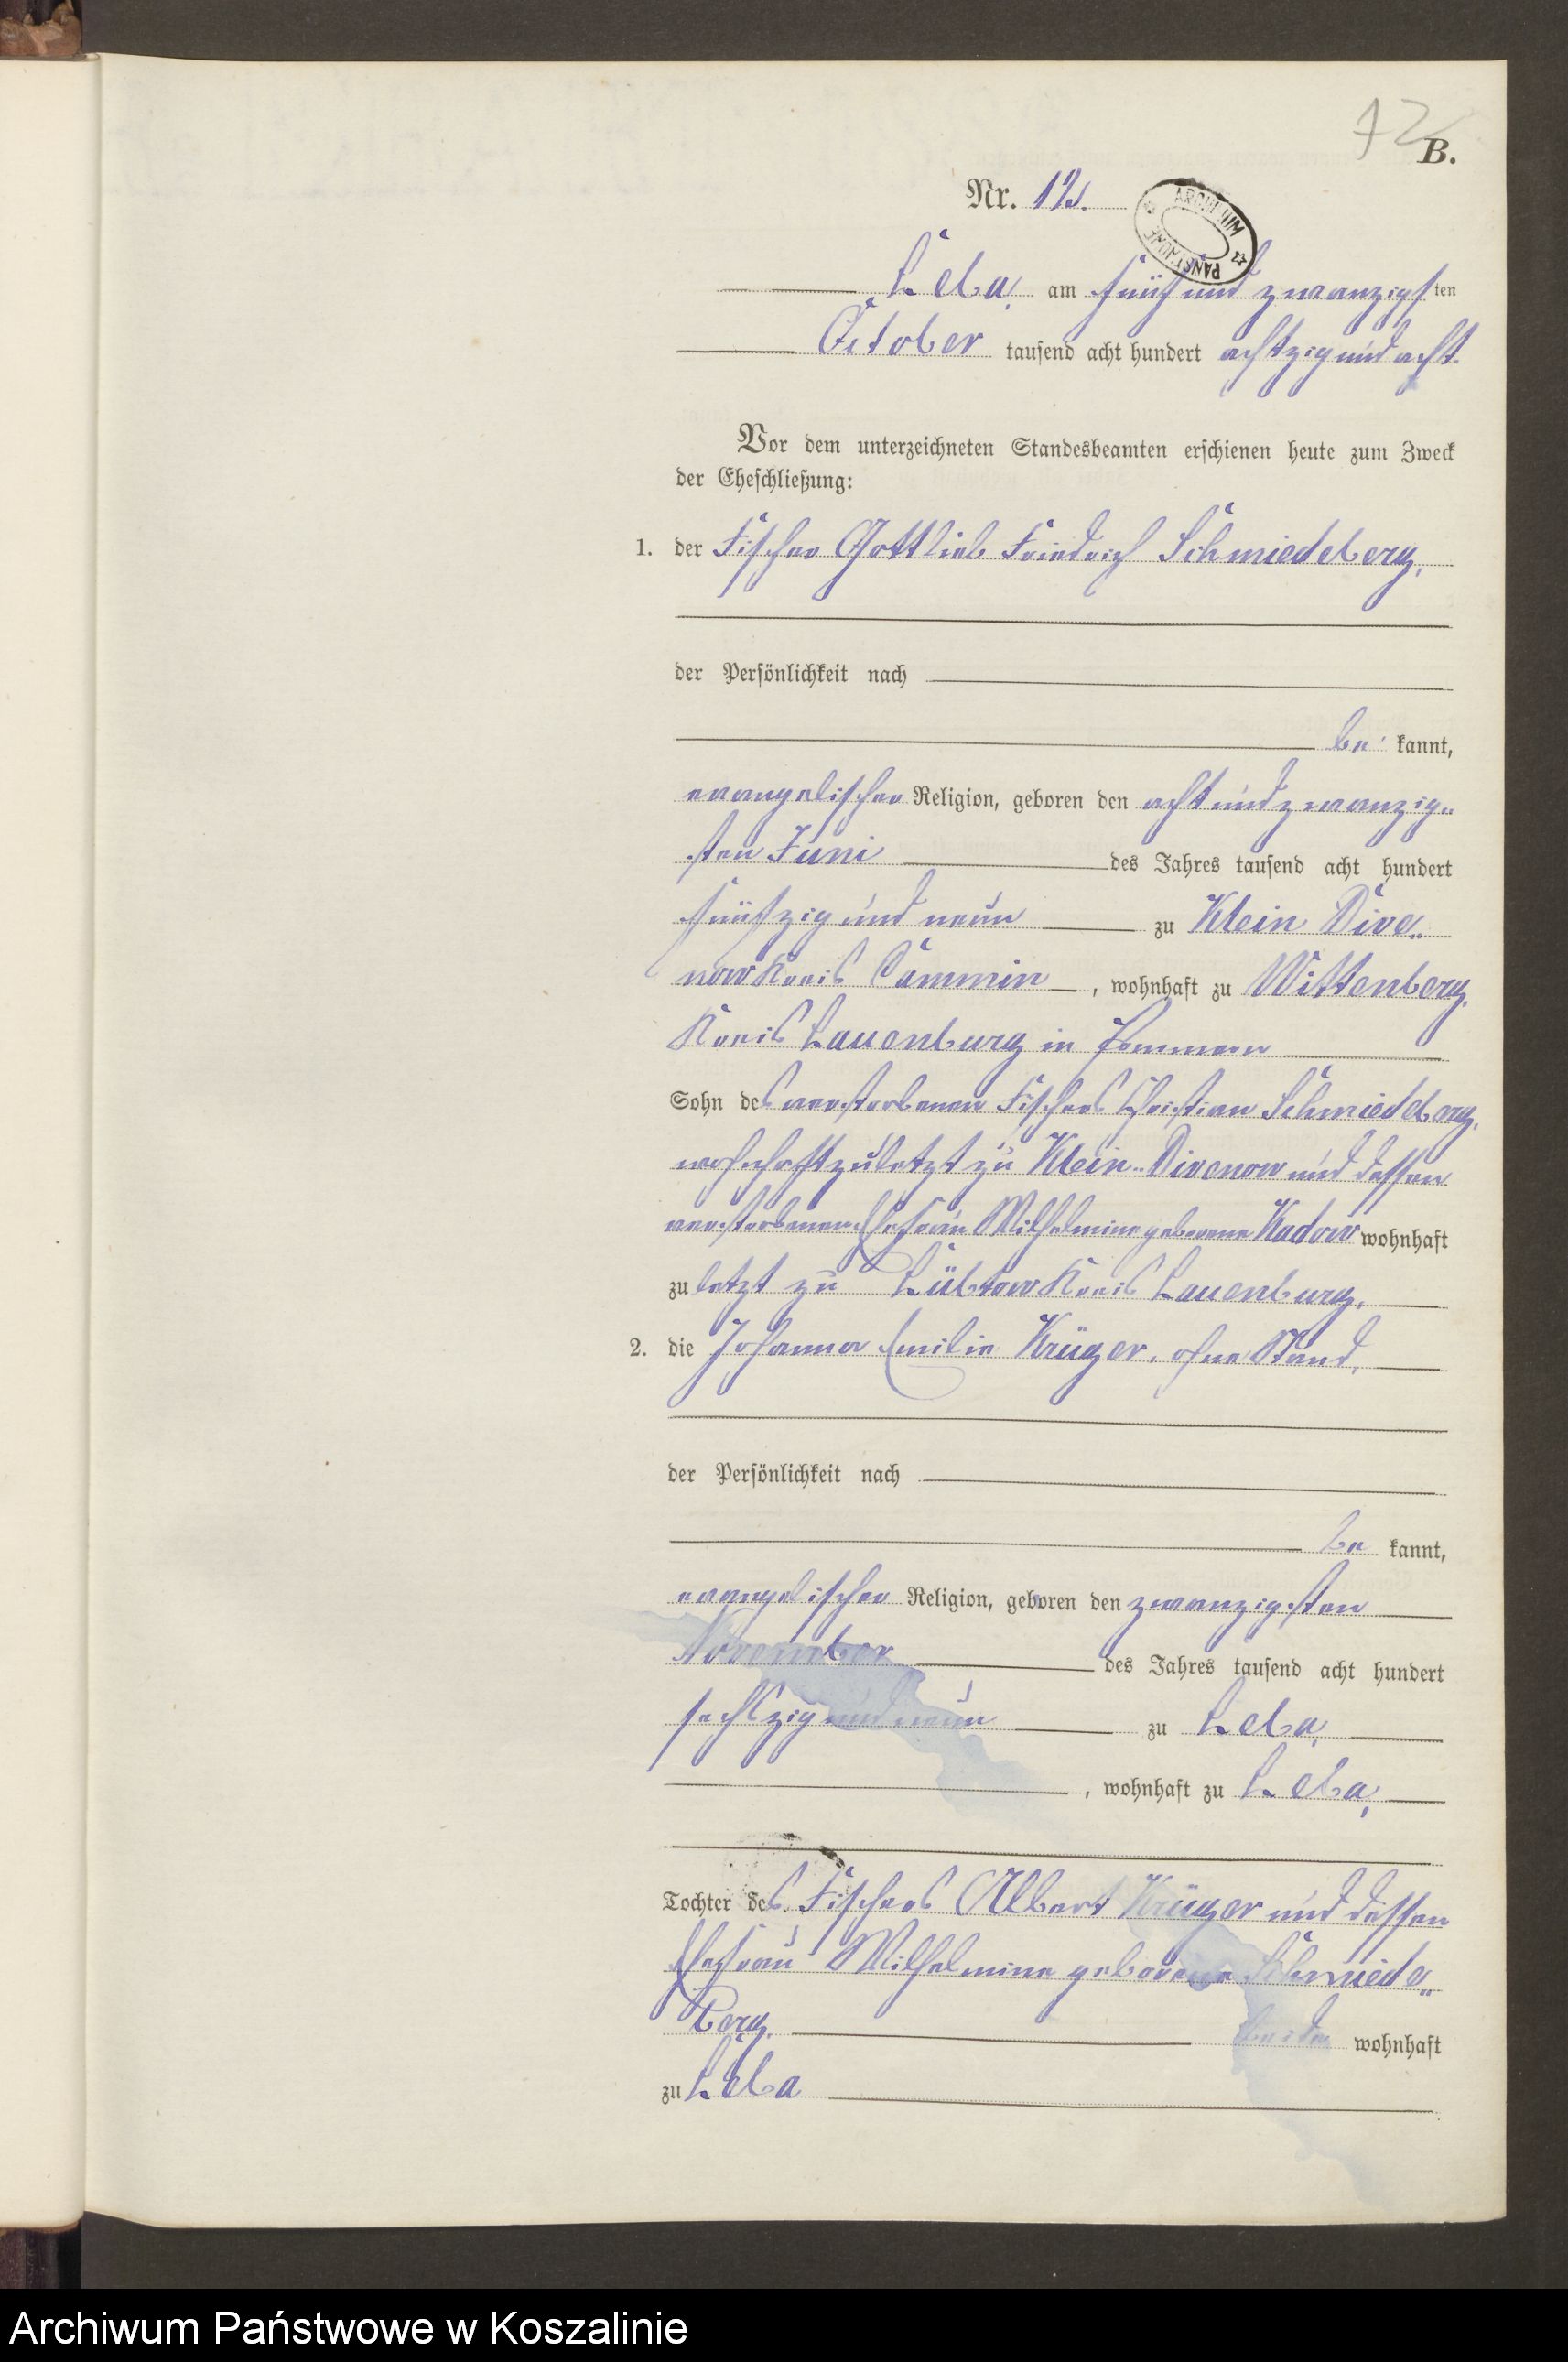 72
B.
Nr. 12.
ARCHIWUM PAŃSTWOWE
Leba, am fünf und zwanzigsten
October tausend acht hundert achtzig und acht.
Vor dem unterzeichneten Standesbeamten erschienen heute zum Zweck
der Eheschließung:
1. der Fischer Gottlieb Friedrich Schmiedeberg,
der Persönlichkeit nach
be kannt,
evangelischer Religion, geboren den acht und zwanzig-
sten Juni des Jahres tausend acht hundert
fünfzig und neun zu Klein Dive-
now Kreis Cammin, wohnhaft zu Wittenberg,
Kreis Lauenburg in Pommern
Sohn des verstorbenen Fischers Christian Schmiedeberg,
wohnhaft zuletzt zu Klein-Divenow und dessen
verstorbenen Ehefrau Wilhelmine geborene Kadow wohnhaft
zuletzt zu Lübtow Kreis Lauenburg,
2. die Johanna Emilie Krüger, ohne Stand,
der Persönlichkeit nach
be kannt,
evangelischer Religion, geboren den zwanzigsten
November des Jahres tausend acht hundert
sechszig und neun zu Leba,
, wohnhaft zu Leba,
Tochter des Fischers Albert Krüger und dessen
Ehefrau Wilhelmine geborene Schmiede-
berg, beide wohnhaft
zu Leba
Archiwum Państwowe w Koszalinie